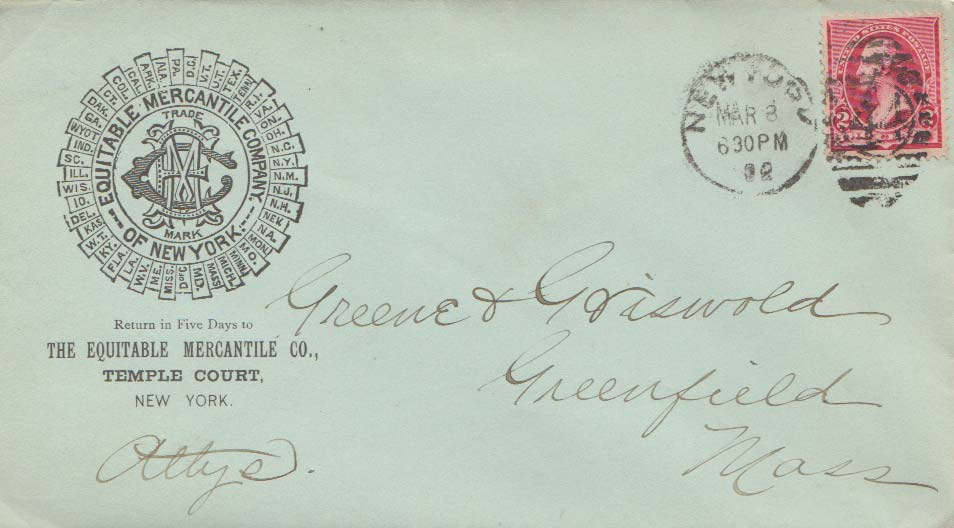 EQUITABLE MERCANTILE COMPANY.
OF NEW YORK.
TRADE
MARK
PA.
D.C.
V.T.
U.T.
TEX.
TENN.
R.I.
VA.
ON.
OH.
N.C.
N.Y.
N.M.
N.J.
N.H.
NEV.
NA.
MON.
MO.
MINN.
MICH.
MASS
MD.
D of C
MISS.
ME.
W.V.
LA.
FLA.
KY.
W.T.
KAS.
DEL.
IO.
WIS.
ILL.
SC.
IND.
WYOT
GA.
DAK.
CT.
COL.
CAL.
ARK.
ALA.
NEW YORK
MAR 8
630PM
92
UNITED STATES POSTAGE
2
Return in Five Days to
THE EQUITABLE MERCANTILE CO.,
TEMPLE COURT,
NEW YORK.
Greene & Griswold
Greenfield
Mass
Attys.